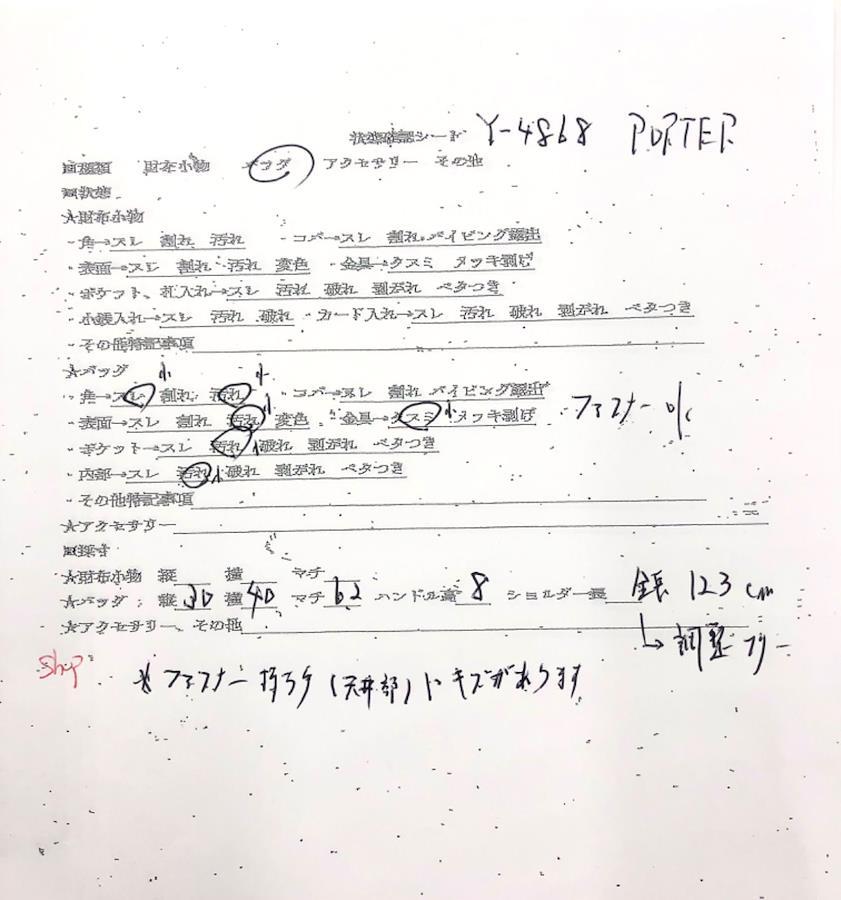 状態確認シート Y-4868 PORTER
■種類 財布小物 バッグ アクセサリー その他
■状態
★財布小物
・角→スレ 割れ 汚れ ・コバ→スレ 割れ パイピング露出
・表面→スレ 割れ 汚れ 変色 ・金具→クスミ メッキ剥げ
・ポケット、札入れ→スレ 汚れ 破れ 剥がれ ベタつき
・小銭入れ→スレ 汚れ 破れ ・カード入れ→スレ 汚れ 破れ 剥がれ ベタつき
・その他特記事項
★バッグ 小 小
・角→スレ 割れ 汚れ ・コバ→スレ 割れ パイピング露出
・表面→スレ 割れ 汚れ 小 変色 ・金具→クスミ 小 メッキ剥げ ファスナー ok
・ポケット→スレ 汚れ 小 破れ 剥がれ ベタつき
・内部→スレ 汚れ 小 破れ 剥がれ ベタつき
・その他特記事項
★アクセサリー
■採寸
★財布小物 縦 横 マチ
★バッグ 縦 30 横 40 マチ 62 ハンドル高 8 ショルダー長 全長 123 cm
★アクセサリー、その他 ↳ 調整フリー
Shop
※ファスナー 持ち手 (天井部) に キズがあります